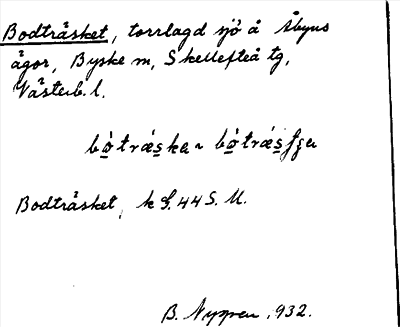 Bodträsket, torrlagd sjö å Åbyns
ägor, Byske sn, Skellefteå tg,
Västerb. l.
bò̱trǽs̱ka ~ bò̱trǽs̱ʃʃa
Bodträsket, k f. 44 S. U.
B. Nygren, 1932.